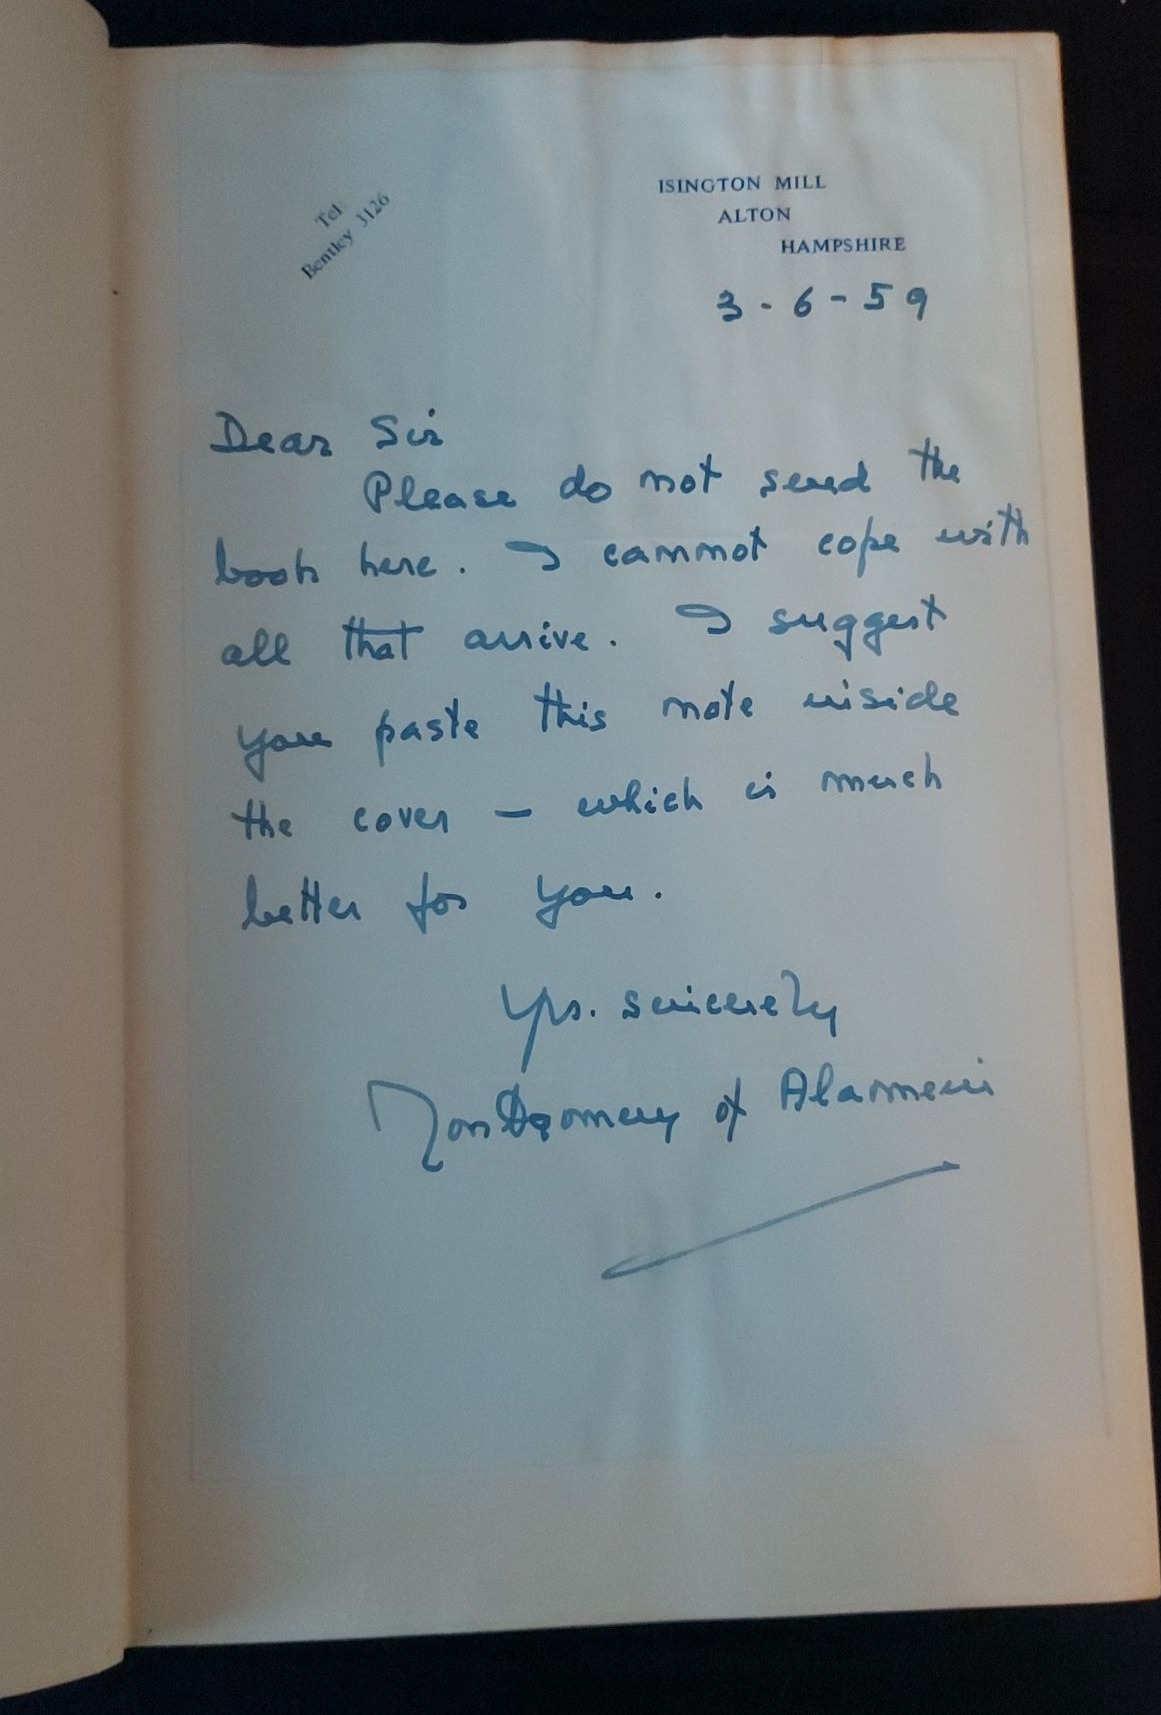 Tel:
Bentley 3126
ISINGTON MILL
ALTON
HAMPSHIRE
3-6-59
Dear Sir
Please do not send the
book here. I cannot cope with
all that arrive. I suggest
you paste this note inside
the cover - which is much
better for you.
Yrs. sincerely
Montgomery of Alamein